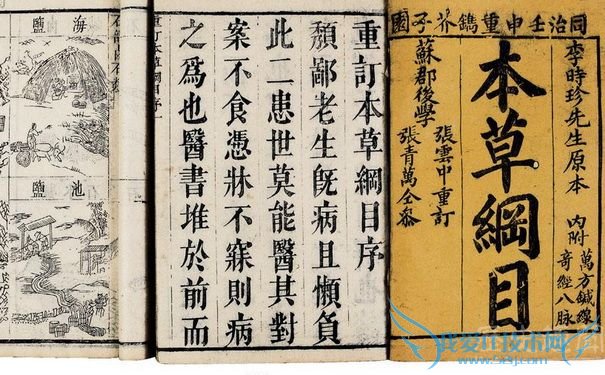 同治壬申重鐫芥子園
李時珍先生原本
內附
萬方鍼線
奇經八脉
本草綱目
蘇郡後學
張雲中重訂
張青萬仝參
重訂本草綱目序
頽鄙老生旣病且懶負
此二患世莫能醫其對
案不食憑牀不寐則病
之爲也醫書堆於前而
重訂本草綱目自序
海鹽
池鹽
我爱IT技术网